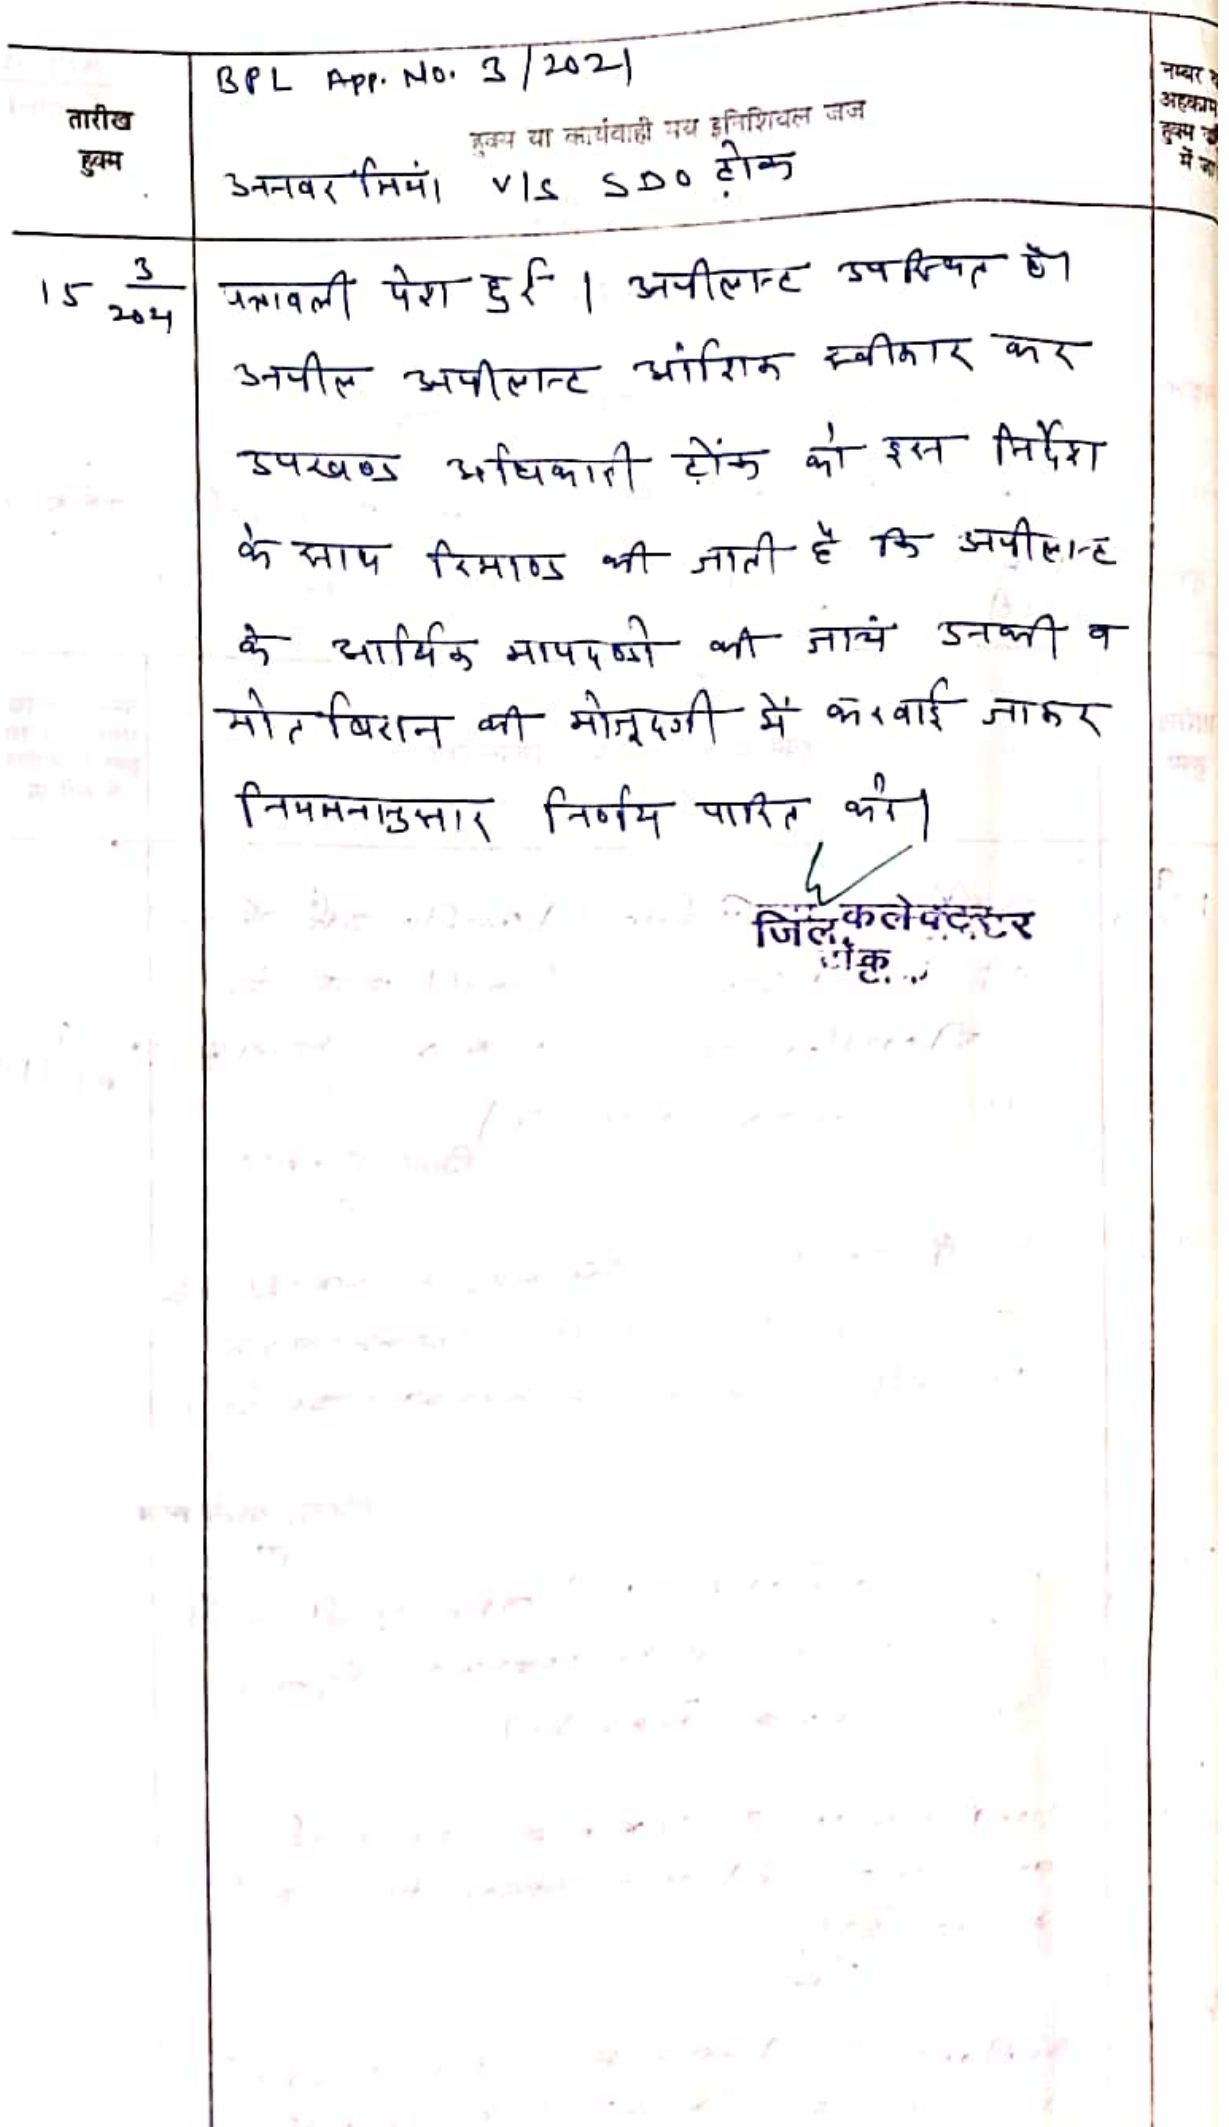 BPL App. No. 3/2021
तारीख
हुक्म
हुक्म या कार्यवाही मय इनिशियल जज
अनवर मियां v/s SDO टोंक
नम्बर
अहकाम
हुक्म
में
15 3
पत्रावली पेश हुई। अपीलान्ट उपस्थित है।
अपील अपीलान्ट आंशिक स्वीकार कर
उपखण्ड अधिकारी टोंक को इस निर्देश
के साथ रिमाण्ड की जाती है कि अपीलान्ट
के आर्थिक मापदण्डो की जाचं उनकी व
मोतबिरान की मोजूदगी में करवाई जाकर
नियमनानुसार निर्णय पारित करे।
जिला कलेक्टर
टोंक